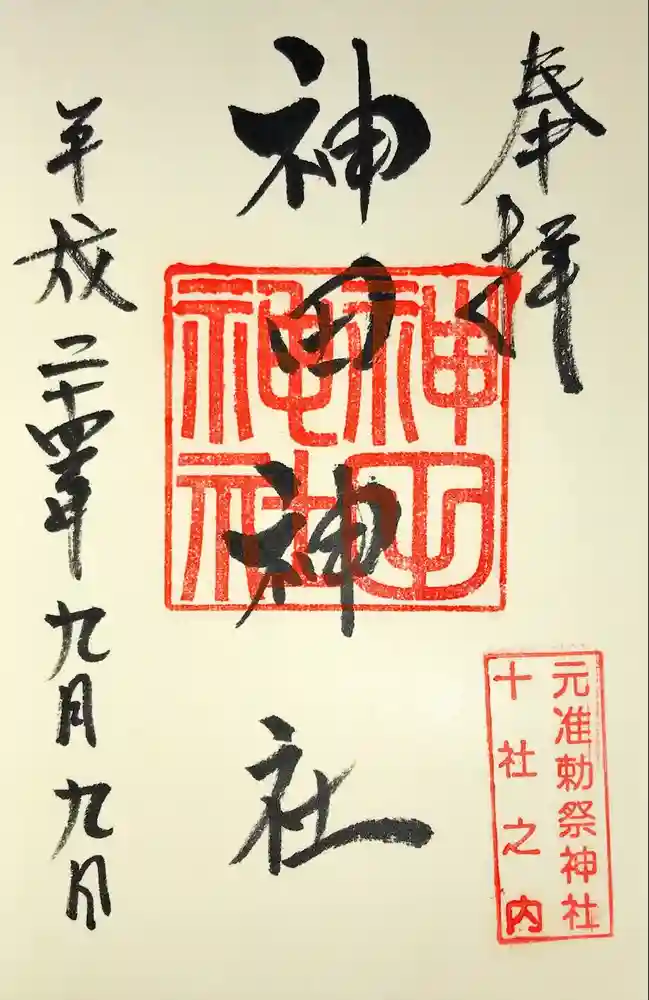 奉拝
神田神社
神田
神社
元准勅祭神社
十社之内
平成二十四年九月九日